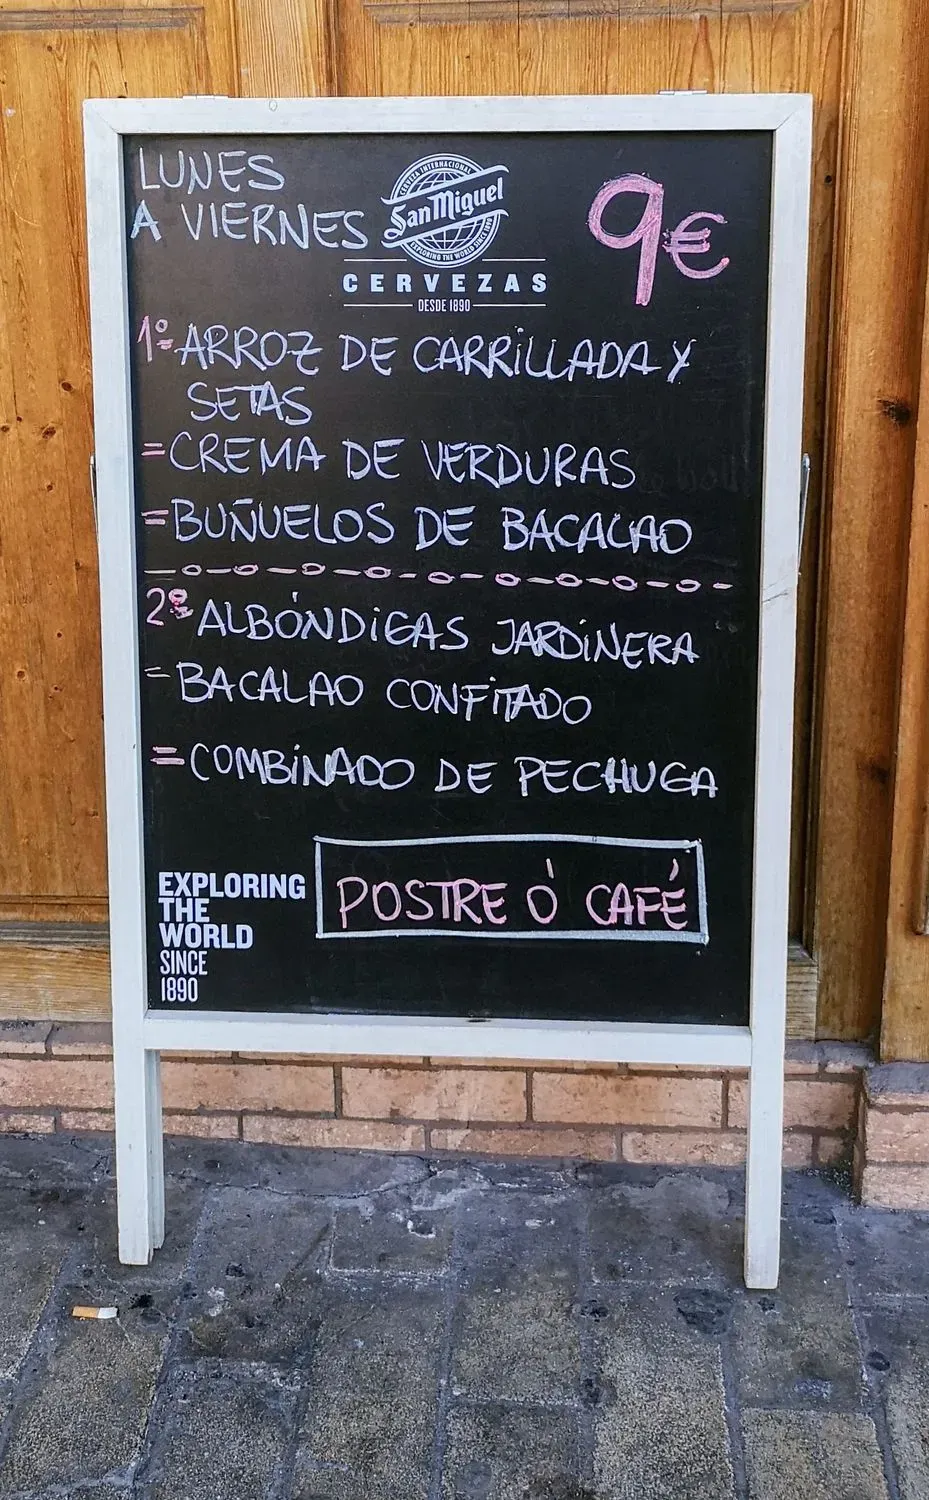 LUNES
A VIERNES
CERVEZA INTERNACIONAL
San Miguel
EXPLORING THE WORLD SINCE 1890
CERVEZAS
DESDE 1890
9€
1º ARROZ DE CARRILLADA Y
SETAS
= CREMA DE VERDURAS
= BUÑUELOS DE BACALAO
2º ALBÓNDIGAS JARDINERA
= BACALAO CONFITADO
= COMBINADO DE PECHUGA
POSTRE Ó CAFÉ
EXPLORING
THE
WORLD
SINCE
1890